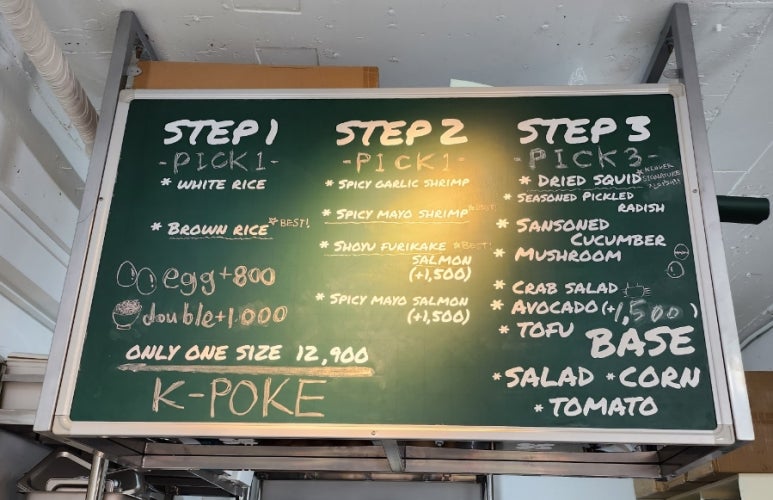 STEP 1
-PICK 1-
* WHITE RICE
* BROWN RICE *BEST!
egg+800
double+1.000
ONLY ONE SIZE 12,900
K-POKE
STEP 2
-PICK 1-
* SPICY GARLIC SHRIMP
* SPICY MAYO SHRIMP *BEST!
* SHOYU FURIKAKE *BEST!
SALMON
(+1,500)
* SPICY MAYO SALMON
(+1,500)
STEP 3
-PICK 3-
* DRIED SQUID
SIGNATURE
* SEASONED PICKLED
RADISH
* SANSONED
CUCUMBER
* MUSHROOM
* CRAB SALAD
* AVOCADO (+1,500)
* TOFU
BASE
* SALAD * CORN
* TOMATO